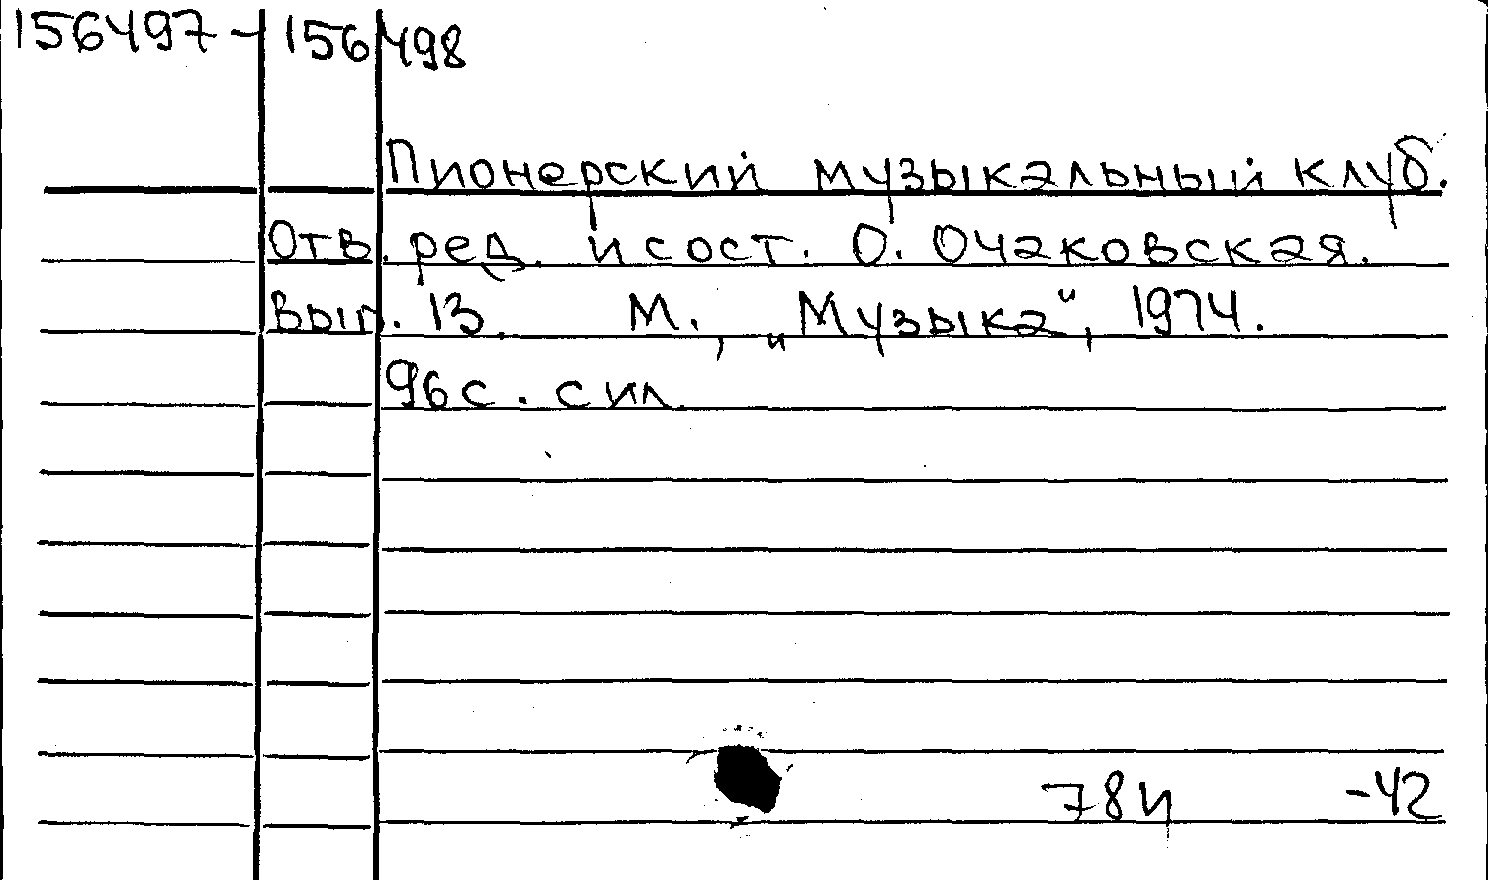 156497-156498
Пионерский музыкальный клуб.
Отв. ред. и сост. О. Очаковская.
Вып. 13. М., „Музыка", 1974.
96 с. с ил.
78И -42